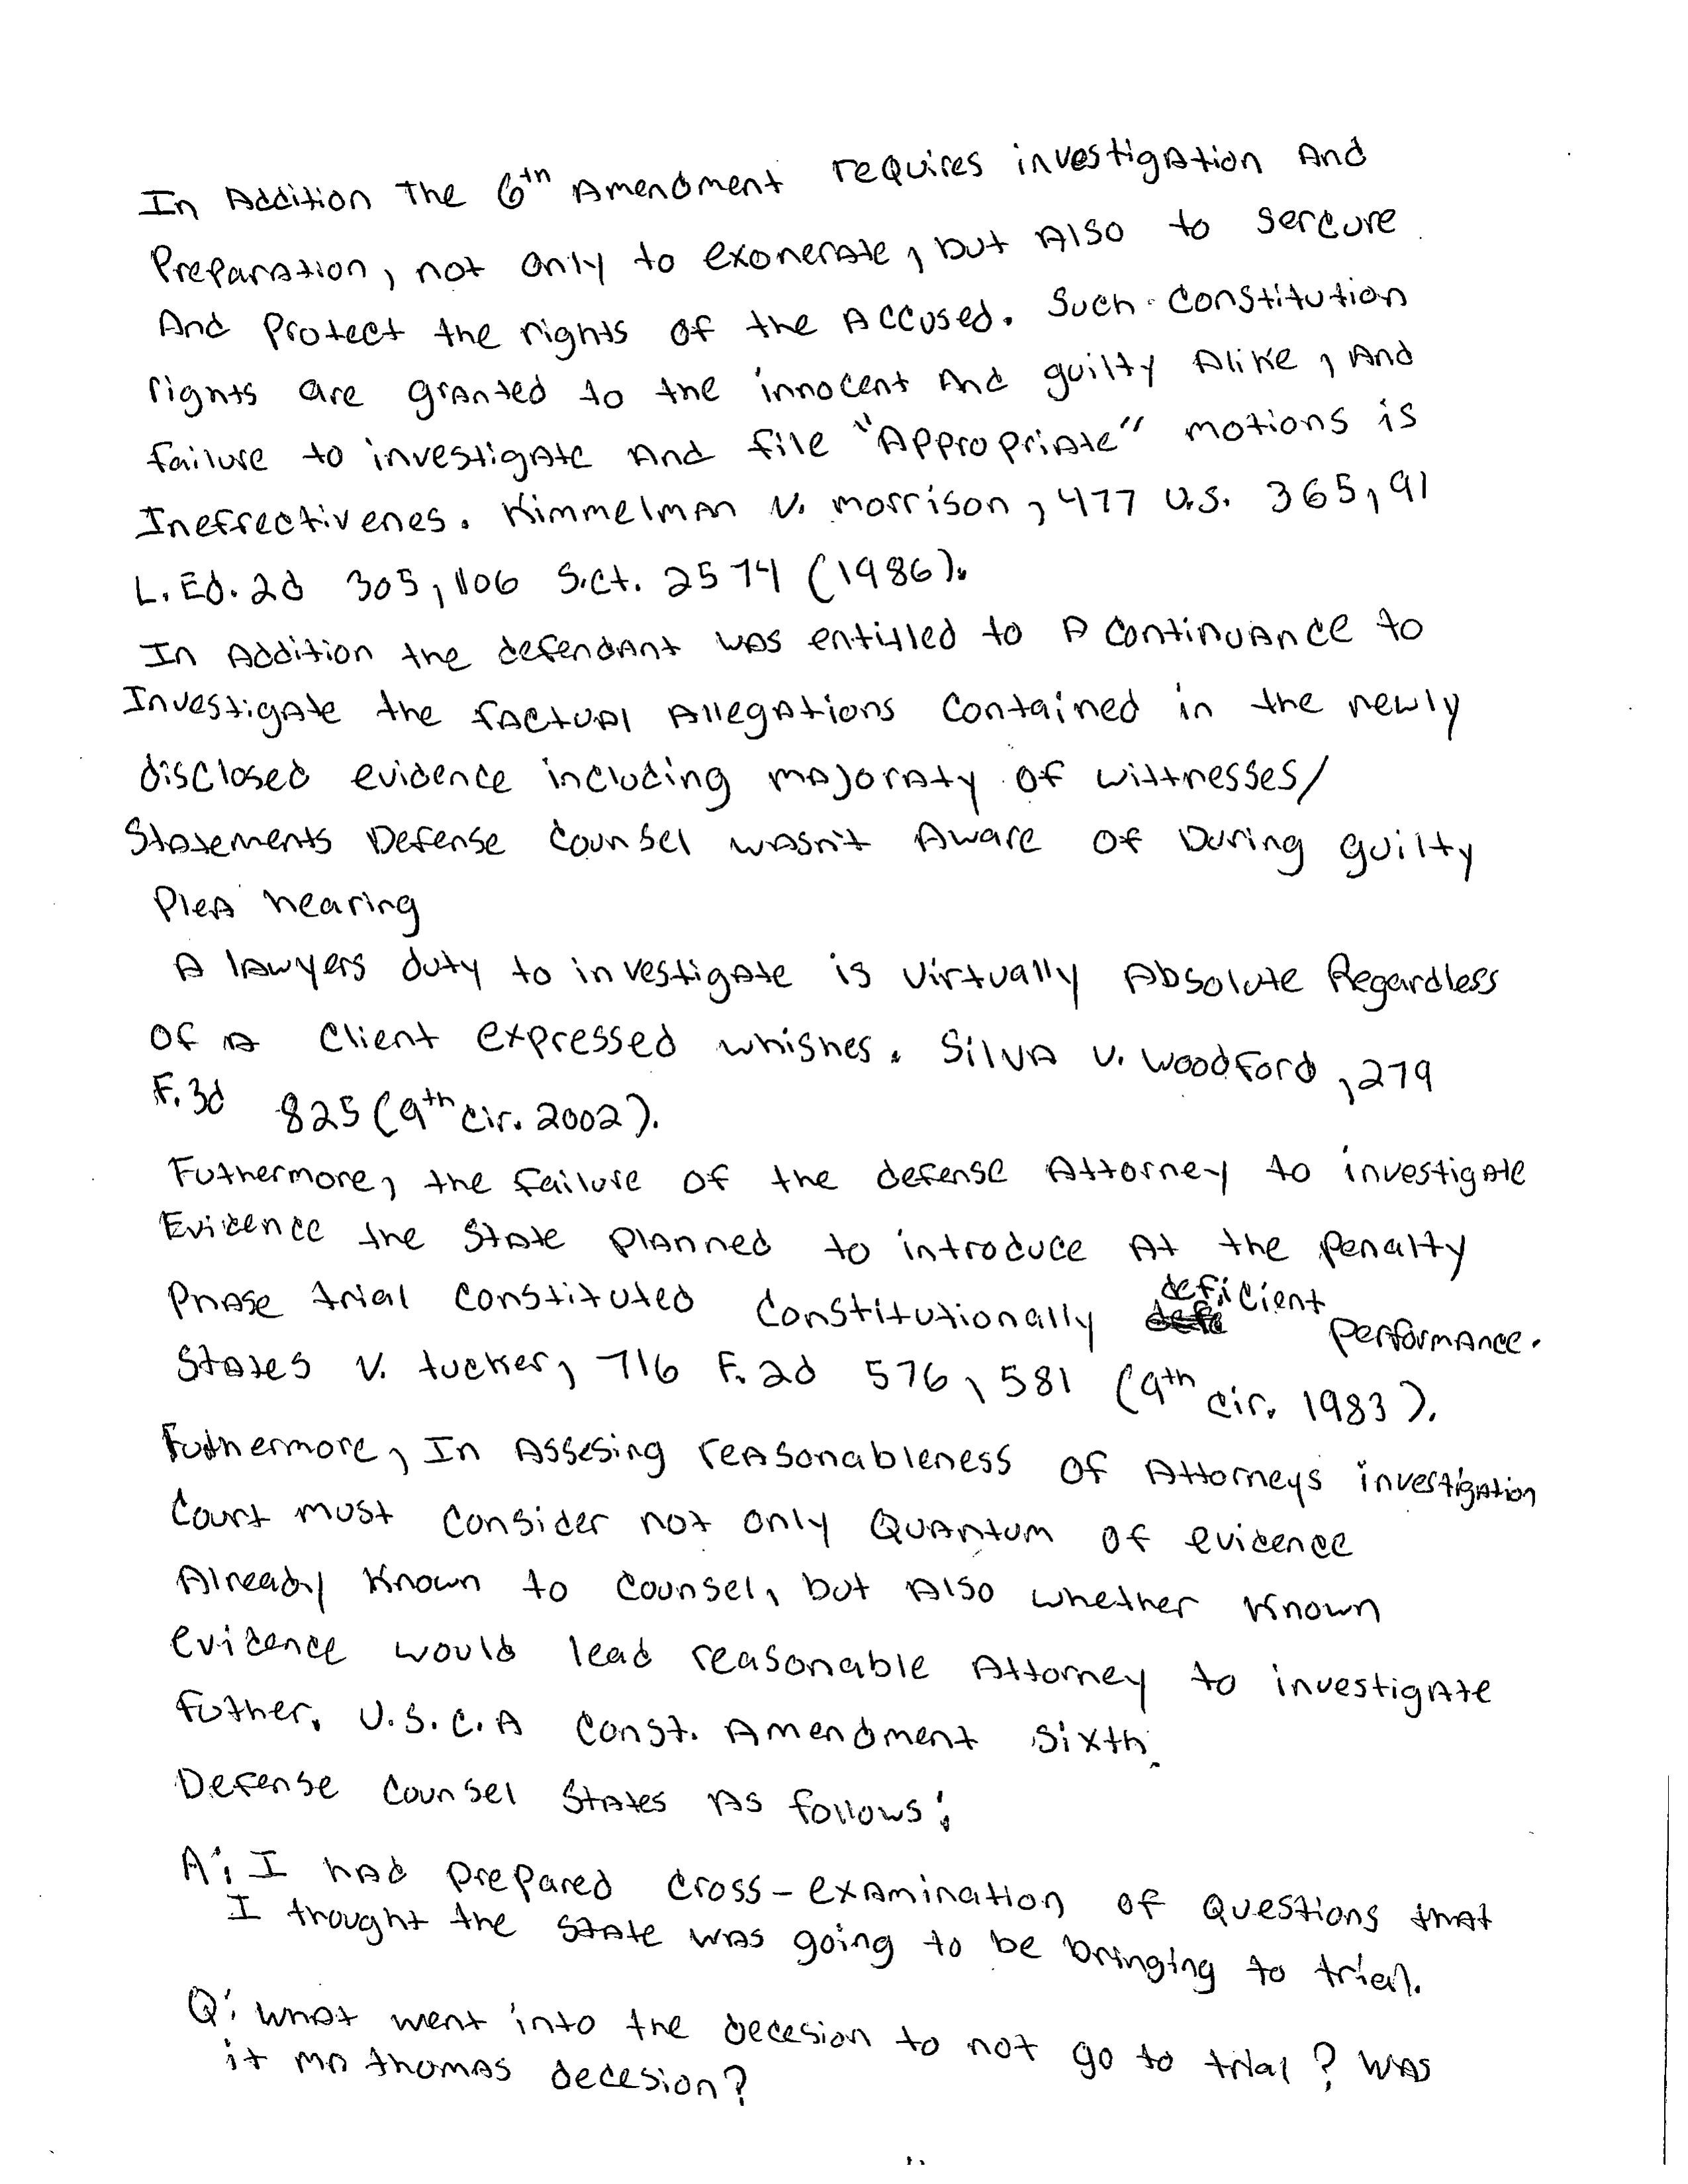 In Addition The 6th Amendment requires investigation And
Preparation, not only to exonerate, but Also to sercure
And Protect the rights of the Accused. Such Constitution
rights are granted to the innocent And guilty Alike, And
failure to investigate And file "Appropriate" motions is
Ineffectivenes. Kimmelman v. morrison, 477 U.S. 365, 91
L.Ed.2d 305, 106 S.Ct. 2574 (1986).
In Addition the defendant was entitled to A Continuance to
Investigate the factual Allegations Contained in the newly
disclosed evidence including majoraty of wittnesses/
Statements Defense Counsel wasn't Aware Of During guilty
Plea hearing
A lawyers duty to investigate is virtually Absolute Regardless
Of A Client expressed whishes. Silva v. Woodford, 279
F.3d 825 (9th Cir. 2002).
Futhermore, the failure of the defense Attorney to investigate
Evidence the State Planned to introduce At the Penalty
Phase trial Constituted Constitutionally deficient Performance.
States v. tucker, 716 F.2d 576, 581 (9th Cir. 1983).
Futhermore, In Assesing reasonableness Of Attorneys investigation
Court must Consider not only Quantum of evidence
Already Known to Counsel, but Also whether Known
evidence would lead reasonable Attorney to investigate
futher. U.S.C.A Const. Amendment Sixth.
Defense Counsel States As follows:
A: I had prepared cross-examination of Questions that
I trought the State was going to be bringing to trial.
Q: What went into the decesion to not go to trial? Was
it Mr thomas decesion?